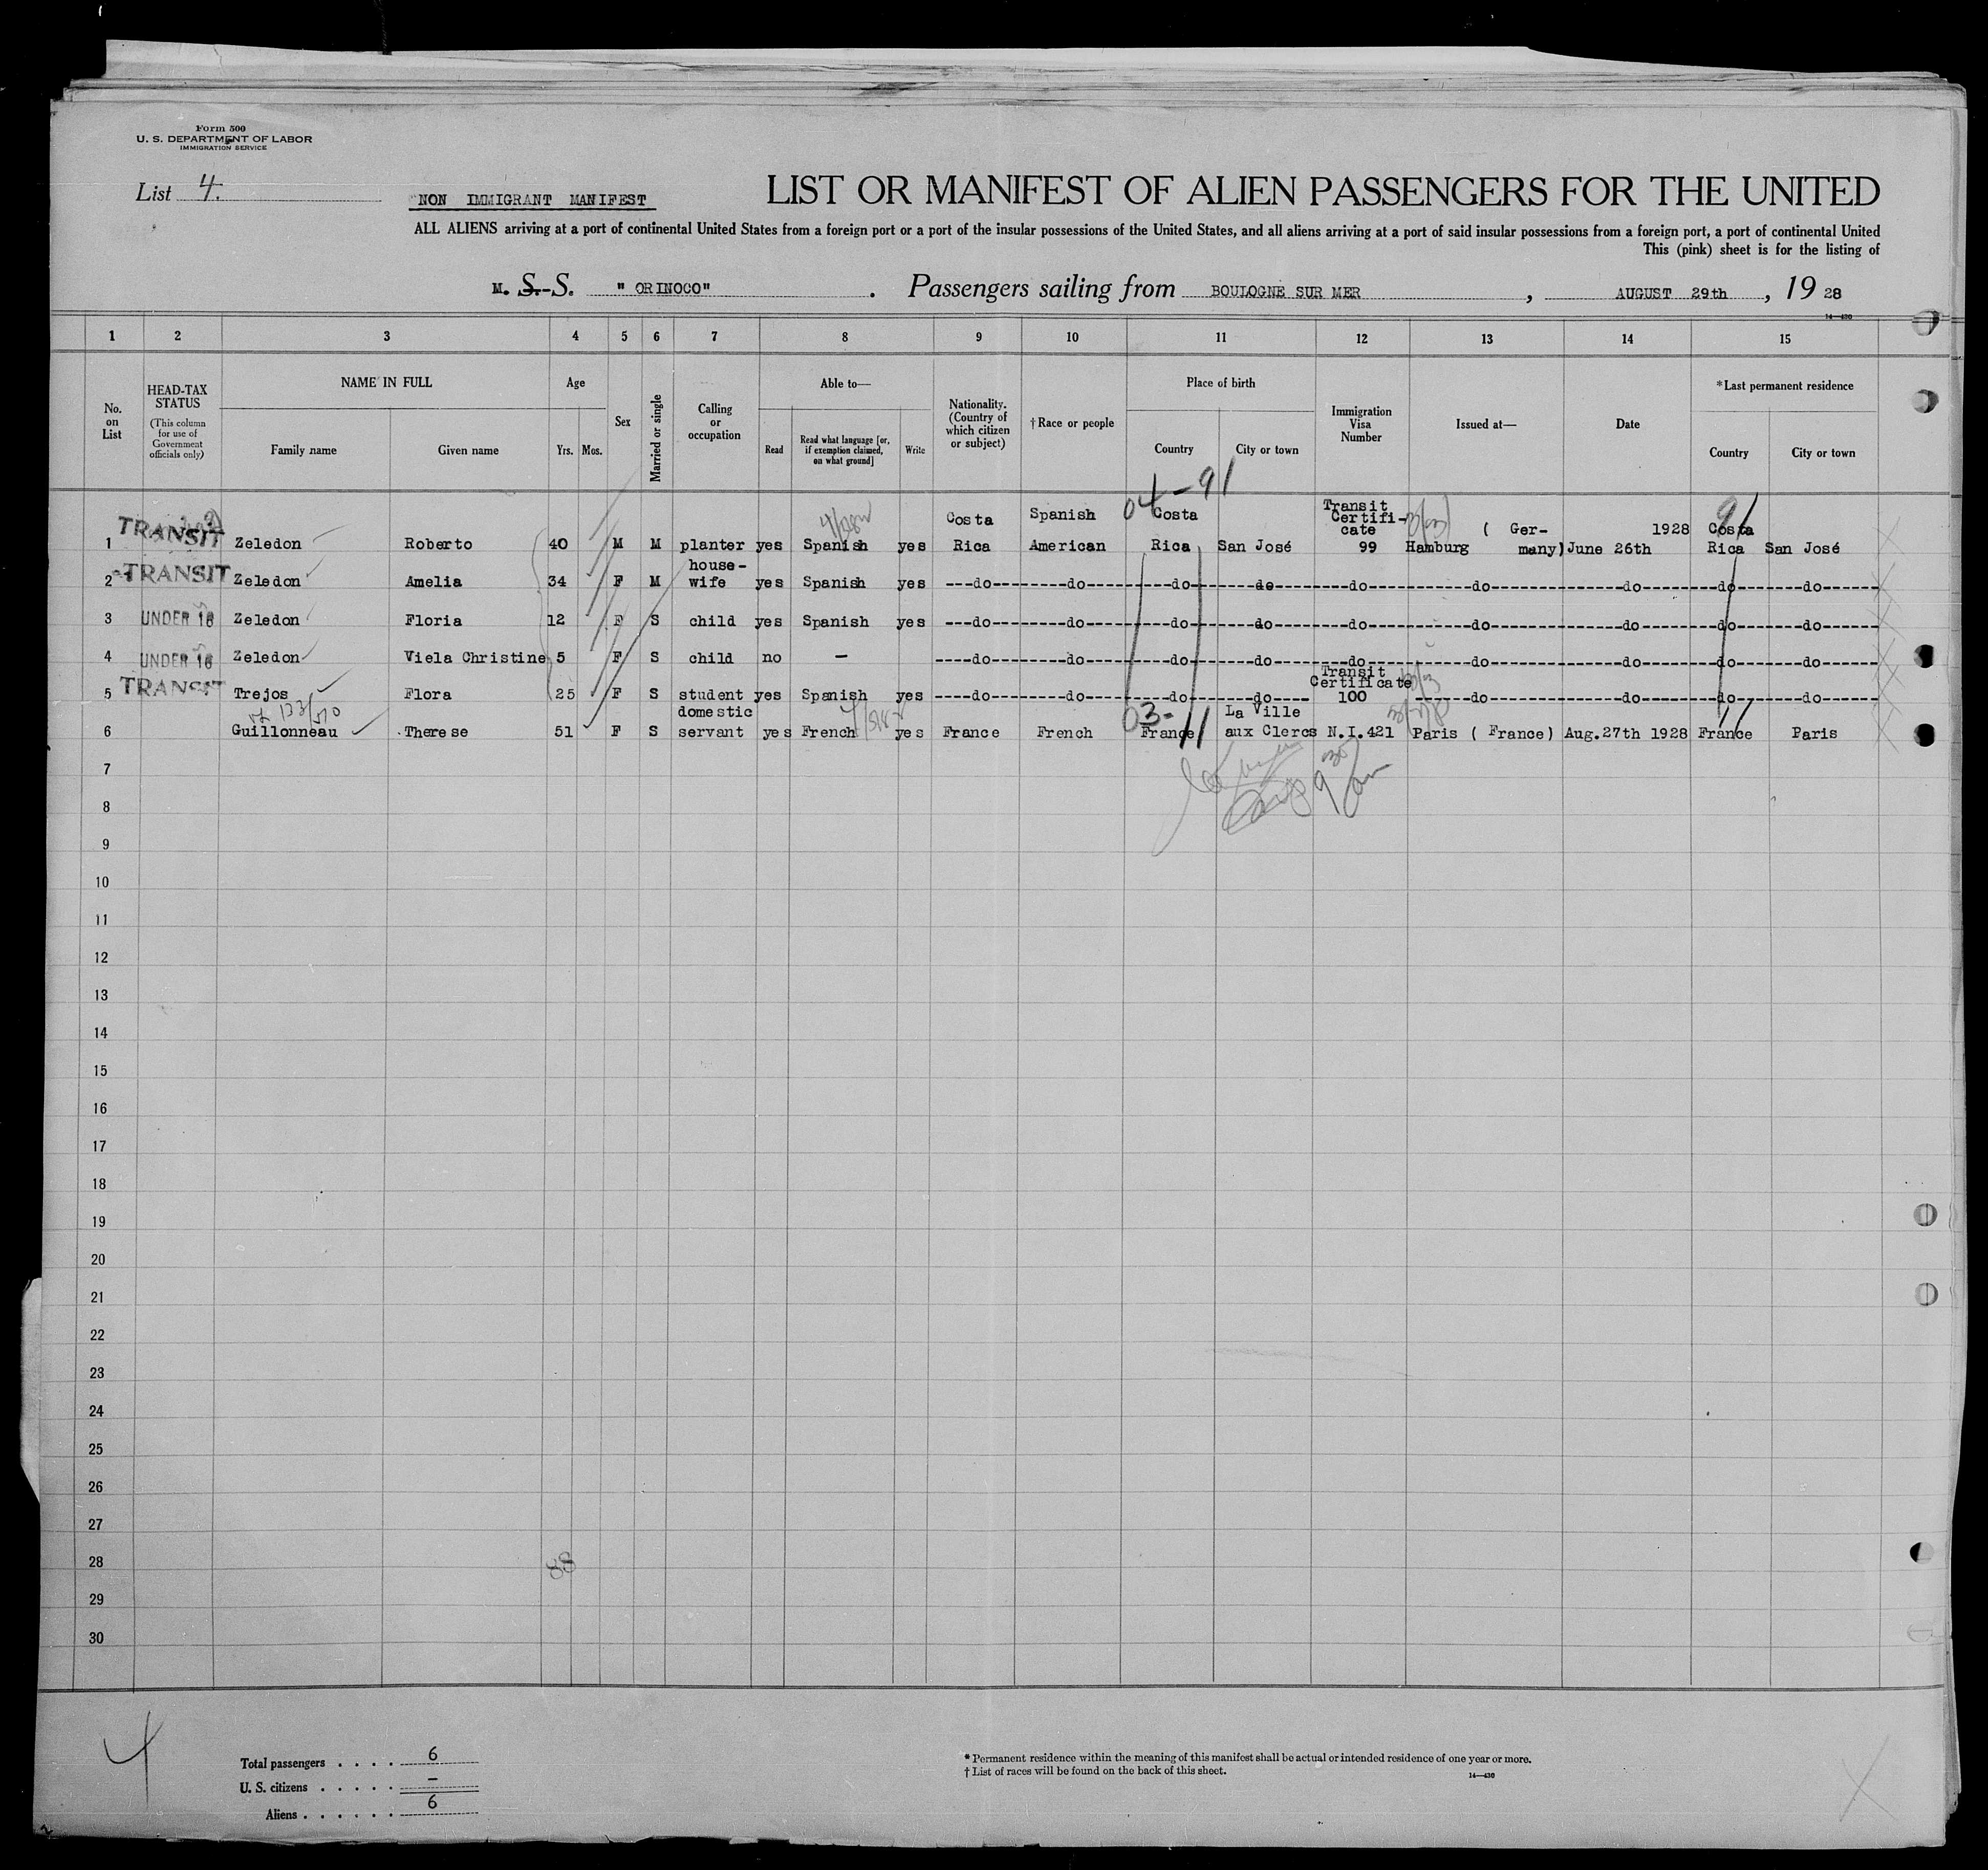 Form 500
U. S. DEPARTMENT OF LABOR
IMMIGRATION SERVICE
List 4.
NON IMMIGRANT MANIFEST
LIST OR MANIFEST OF ALIEN PASSENGERS FOR THE UNITED
ALL ALIENS arriving at a port of continental United States from a foreign port or a port of the insular possessions of the United States, and all aliens arriving at a port of said insular possessions from a foreign port, a port of continental United
This (pink) sheet is for the listing of
M. S. S. " ORINOCO" . Passengers sailing from BOULOGNE SUR MER , AUGUST 29th , 19 28
14—430
1 2 3 4 5 6 7 8 9 10 11 12 13 14 15
No. on List
HEAD-TAX STATUS (This column for use of Government officials only)
NAME IN FULL
Family name Given name
Age
Yrs. Mos.
Sex
Married or single
Calling or occupation
Able to—
Read Read what language [or, if exemption claimed, on what ground] Write
Nationality. (Country of which citizen or subject)
†Race or people
Place of birth
Country City or town
Immigration Visa Number
Issued at—
Date
*Last permanent residence
Country City or town
04-91
91
1 TRANSIT Zeledon Roberto 40 M M planter yes Spanish yes Costa Rica Spanish American Costa Rica San José Transit Certifi-cate 99 Hamburg ( Ger-many) June 26th 1928 Costa Rica San José
2 TRANSIT Zeledon Amelia 34 F M house-wife yes Spanish yes ---do--- ---do--- ---do--- do ---do--- ---do--- ---do--- do ---do---
3 UNDER 16 Zeledon Floria 12 F S child yes Spanish yes ---do--- ---do--- ---do--- do ---do--- ---do--- ---do--- do ---do---
4 UNDER 16 Zeledon Viela Christine 5 F S child no — ----do--- ---do--- ---do--- do ---do--- ---do--- ---do--- do ---do---
5 TRANSIT Trejos Flora 25 F S student yes Spanish yes ----do--- ---do--- ---do--- do---- Transit Certificate 100 ----do--- ---do--- do ---do---
133/510
03- 11
11
6 Guillonneau Therese 51 F S domestic servant yes French yes France French France La Ville aux Clercs N.I.421 Paris ( France) Aug.27th 1928 France Paris
9 30 am
7
8
9
10
11
12
13
14
15
16
17
18
19
20
21
22
23
24
25
26
27
28
88
29
30
4
Total passengers . . . . 6
U. S. citizens . . . . . —
Aliens . . . . . . 6
* Permanent residence within the meaning of this manifest shall be actual or intended residence of one year or more.
† List of races will be found on the back of this sheet.
14—430